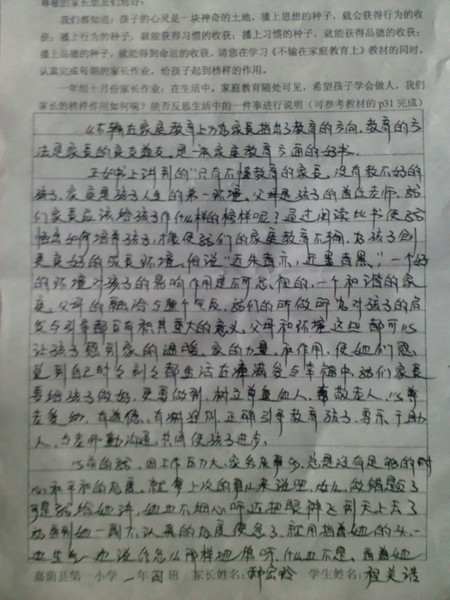 尊敬的家长朋友们您好：
我们都知道：孩子的心灵是一块神奇的土地，播上思想的种子，就会获得行为的收
获；播上行为的种子，就能获得习惯的收获；播上习惯的种子，就能获得品德的收获；
播上品德的种子，就能得到命运的收获。请您在学习《不输在家庭教育上》教材的同时，
认真完成每期的家长作业，给孩子起到榜样的作用。
一年级十月份家长作业：在生活中，家庭教育随处可见，希望孩子学会做人，我们
家长的榜样作用如何呢？能否反思生活中的一件事进行说明（可参考教材的p31完成）
《不输在家庭教育上》为家长指出了教育的方向，教育的方
法是家长的良友益友，是一本家庭教育方面的好书。
正如书上讲到的“只有不懂教育的家长，没有教不好的
孩子，家庭是孩子人生的第一环境，父母是孩子的首任老师，我
们家长应该给孩子作什么样的榜样呢？通过阅读此书使我
悟出如何培养孩子，才能使我们的家庭教育不输，为孩子创
更良好的成长环境。俗说“近朱者赤，近墨者黑”一个好
的环境对孩子的影响作用是不可忽视的，一个和谐的家
庭，父母的融洽与整个气氛，我们的所做所为对孩子的启
发与引导都具有积其重大的意义，父母和环境这些都可以
让孩子感到家的温暖，家的力量，和作用，使她们感
觉到自己时时刻刻都生活在满满爱与幸福中，我们家长
要给孩子做好，更要做到，树立尊重他人，尊敬老人，以尊
老爱幼，有道德，有树近别，正确引导教育孩子，要乐于助
人，与老师勤沟通，共同使孩子进步。
以在的我，因工作压力大，家务众事多，总是没有足够的耐
心和平和的态度，就拿上次的事以来说吧，女儿，做错题了
可是我给她讲，她也不细心听还把眼神飞到天上去了
为感到她一副不认真的态度使急了，就用指着她的头，一
边生气一边说你怎么那样地呢呀，什么也不是，看着她
嘉荫县第 小学一年四班 家长姓名： 学生姓名：程美浩